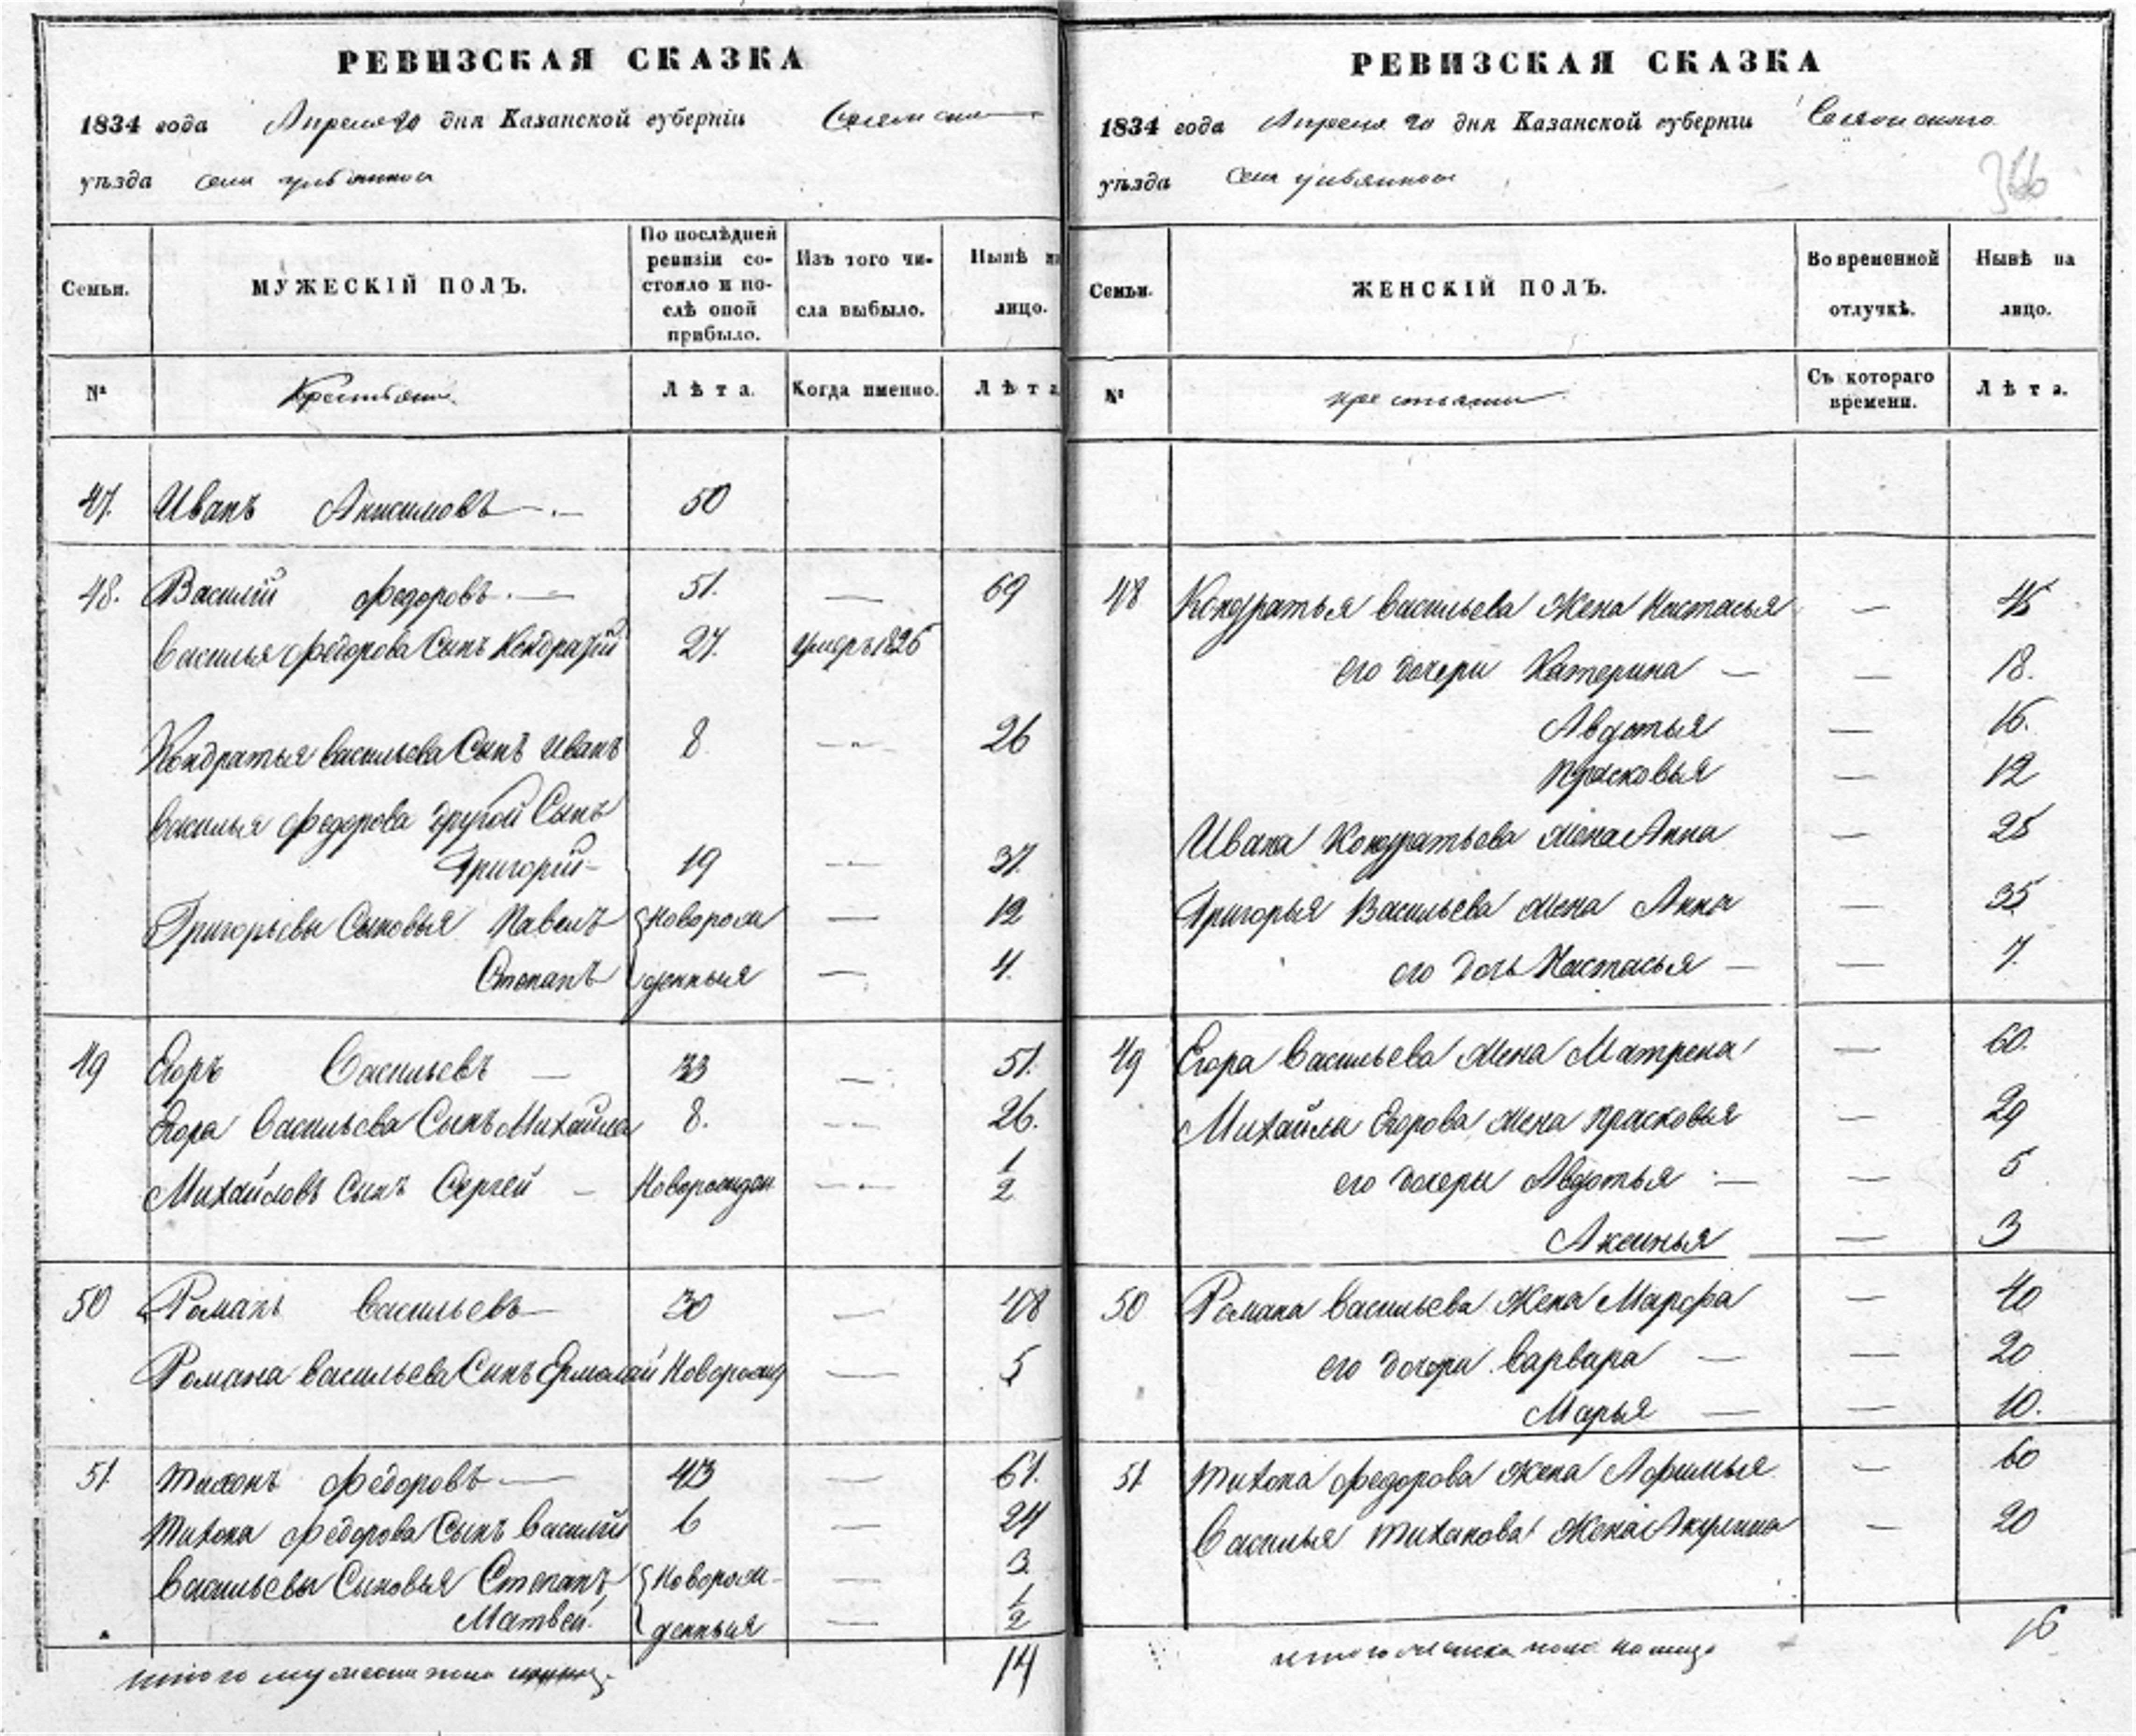 РЕВИЗСКАЯ СКАЗКА
1834 года Апреля 20 дня Казанской губерніи
уѣзда села
Семьи.
МУЖЕСКІЙ ПОЛЪ.
По послѣдней ревизіи со-
стояло и по-
слѣ оной
прибыло.
Изъ того чи-
сла выбыло.
Нынѣ на
лицо.
№
Крестьяне
Лѣта.
Когда именно.
Лѣта
47. Иванъ Анисимовъ 50
48. Василій Федоровъ. — 51. — 69
Василья Федорова Сынъ Кондратій 27. умеръ 1826
Кондратья Васильева Сынъ Иванъ 8 — 26
Василья Федорова другой Сынъ
Григорій 19 — 37.
Григорьевы Сыновья Павелъ Новорож — 12
Степанъ денныя — 4.
49 Егоръ Васильевъ — 33 — 51.
Егора Васильева Сынъ Михайла 8. — 26.
Михайловъ Сынъ Сергей — Новорожден — 1/2
50 Романъ Васильевъ — 30 — 48
Романа Васильева Сынъ Ермолай Новорожд — 5
51. Тихонъ Федоровъ — 43 — 61.
Тихона Федорова Сынъ Василій 6 — 24
Васильевы Сыновья Степанъ Новорож- — 3.
Матвей. денныя — 1/2
итого мужеска пола 14
РЕВИЗСКАЯ СКАЗКА
1834 года Апреля 20 дня Казанской губерніи
уѣзда села
366
Семьи.
ЖЕНСКІЙ ПОЛЪ.
Во временной
отлучкѣ.
Нынѣ на
лицо.
№
крестьяне
Съ котораго
времени.
Лѣта.
48 Кондратья Васильева Жена Настасья — 45
его дочери Катерина — — 18.
Авдотья — 15.
Прасковья — 12
Ивана Кондратьева жена Анна — 25
Григорья Васильева жена Анна — 35
его дочь Настасья — — 7.
49 Егора Васильева жена Матрена — 60.
Михайлы Егорова жена Прасковья — 29
его дочери Авдотья — — 5
Аксинья — 3
50 Романа Васильева Жена Марфа — 40
его дочери Варвара — — 20
Марья — — 10.
51 Тихона Федорова Жена Афимья — 60
Василья Тихонова Жена Акулина — 20
итого женска пола на лицо 16